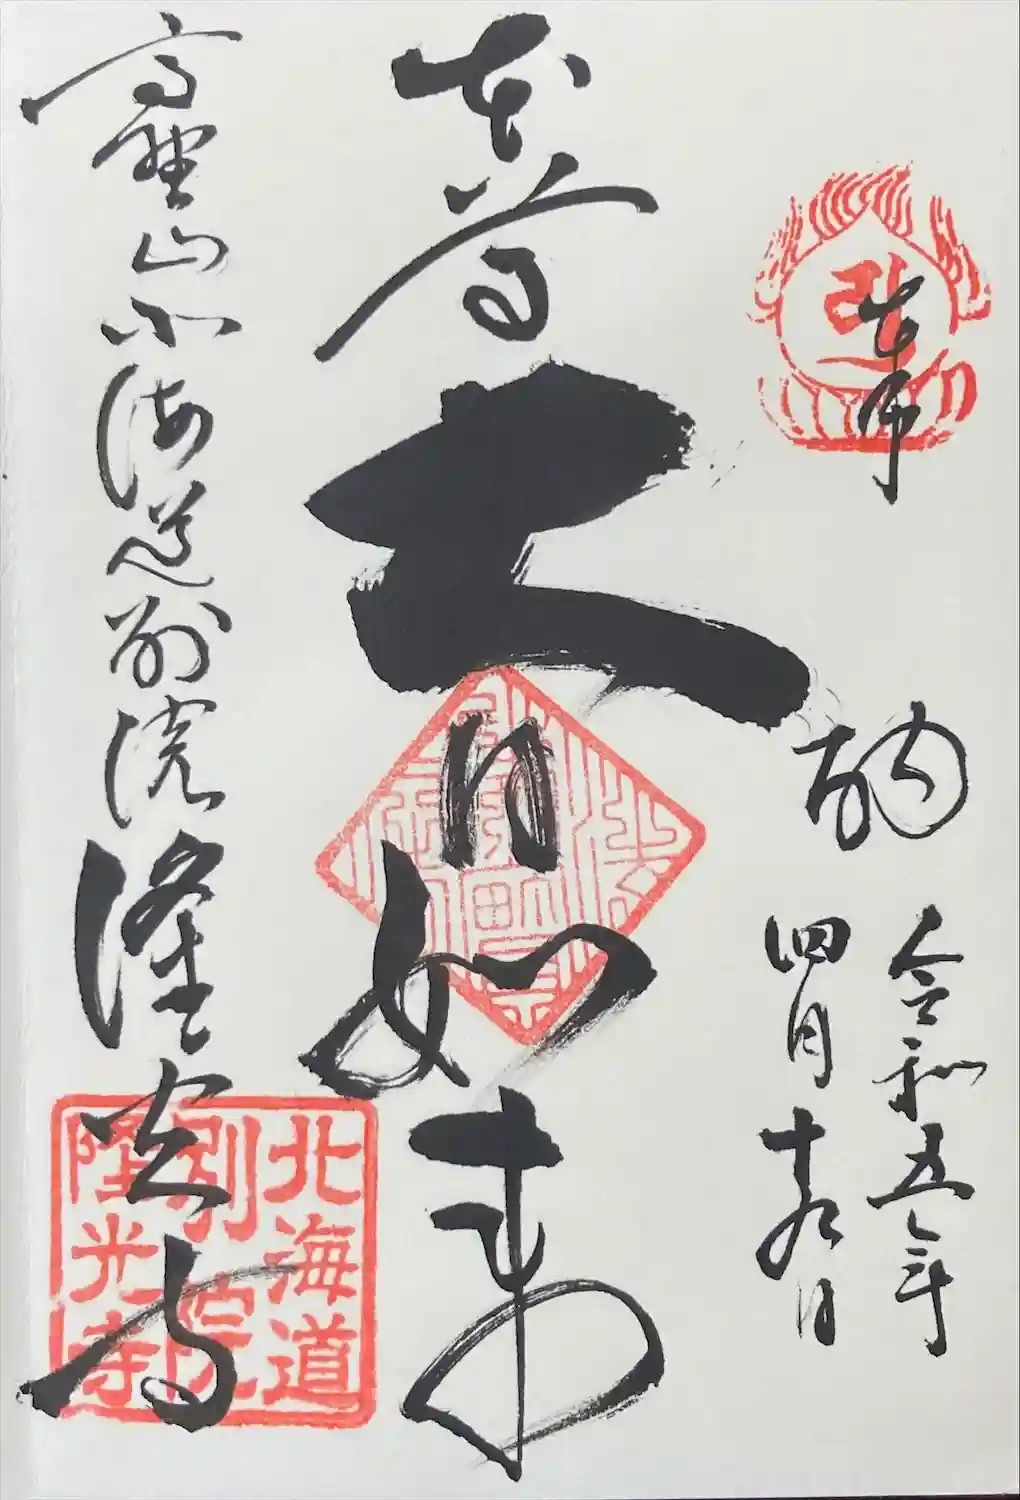 奉拝
納
令和五年
四月十九日
本尊
大日如来
高野山北海道別院隆光寺
北海道
別院
隆光寺